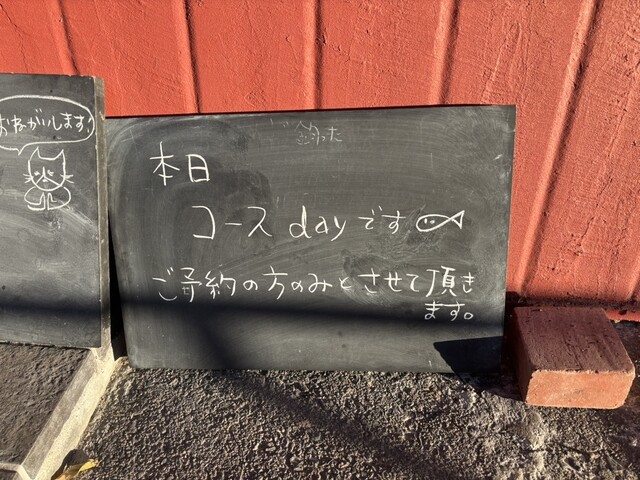 おねがいします!
釣った
本日
コース dayです
ご予約の方のみとさせて頂き
ます。